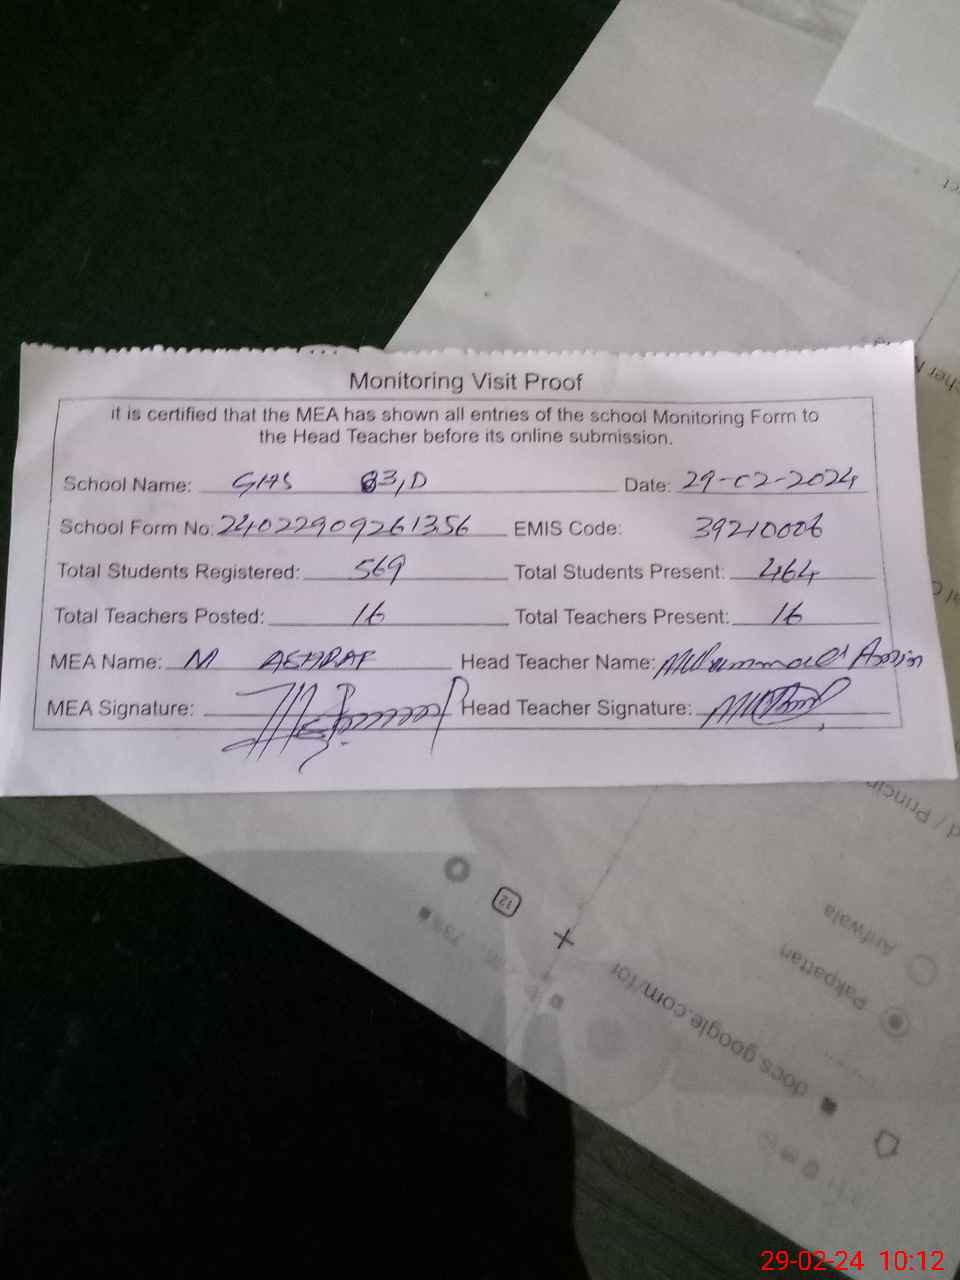 Monitoring Visit Proof
it is certified that the MEA has shown all entries of the school Monitoring Form to
the Head Teacher before its online submission.
School Name: GHS 83,D Date: 29-02-2024
School Form No: 24022909261356 EMIS Code: 39210006
Total Students Registered: 569 Total Students Present: 464
Total Teachers Posted: 16 Total Teachers Present: 16
MEA Name: M ASHRAF Head Teacher Name: Muhammad Amin
MEA Signature: Head Teacher Signature:
d / Princip
Arifwala
Pakpattan
12
docs.google.com/for
29-02-24 10:12